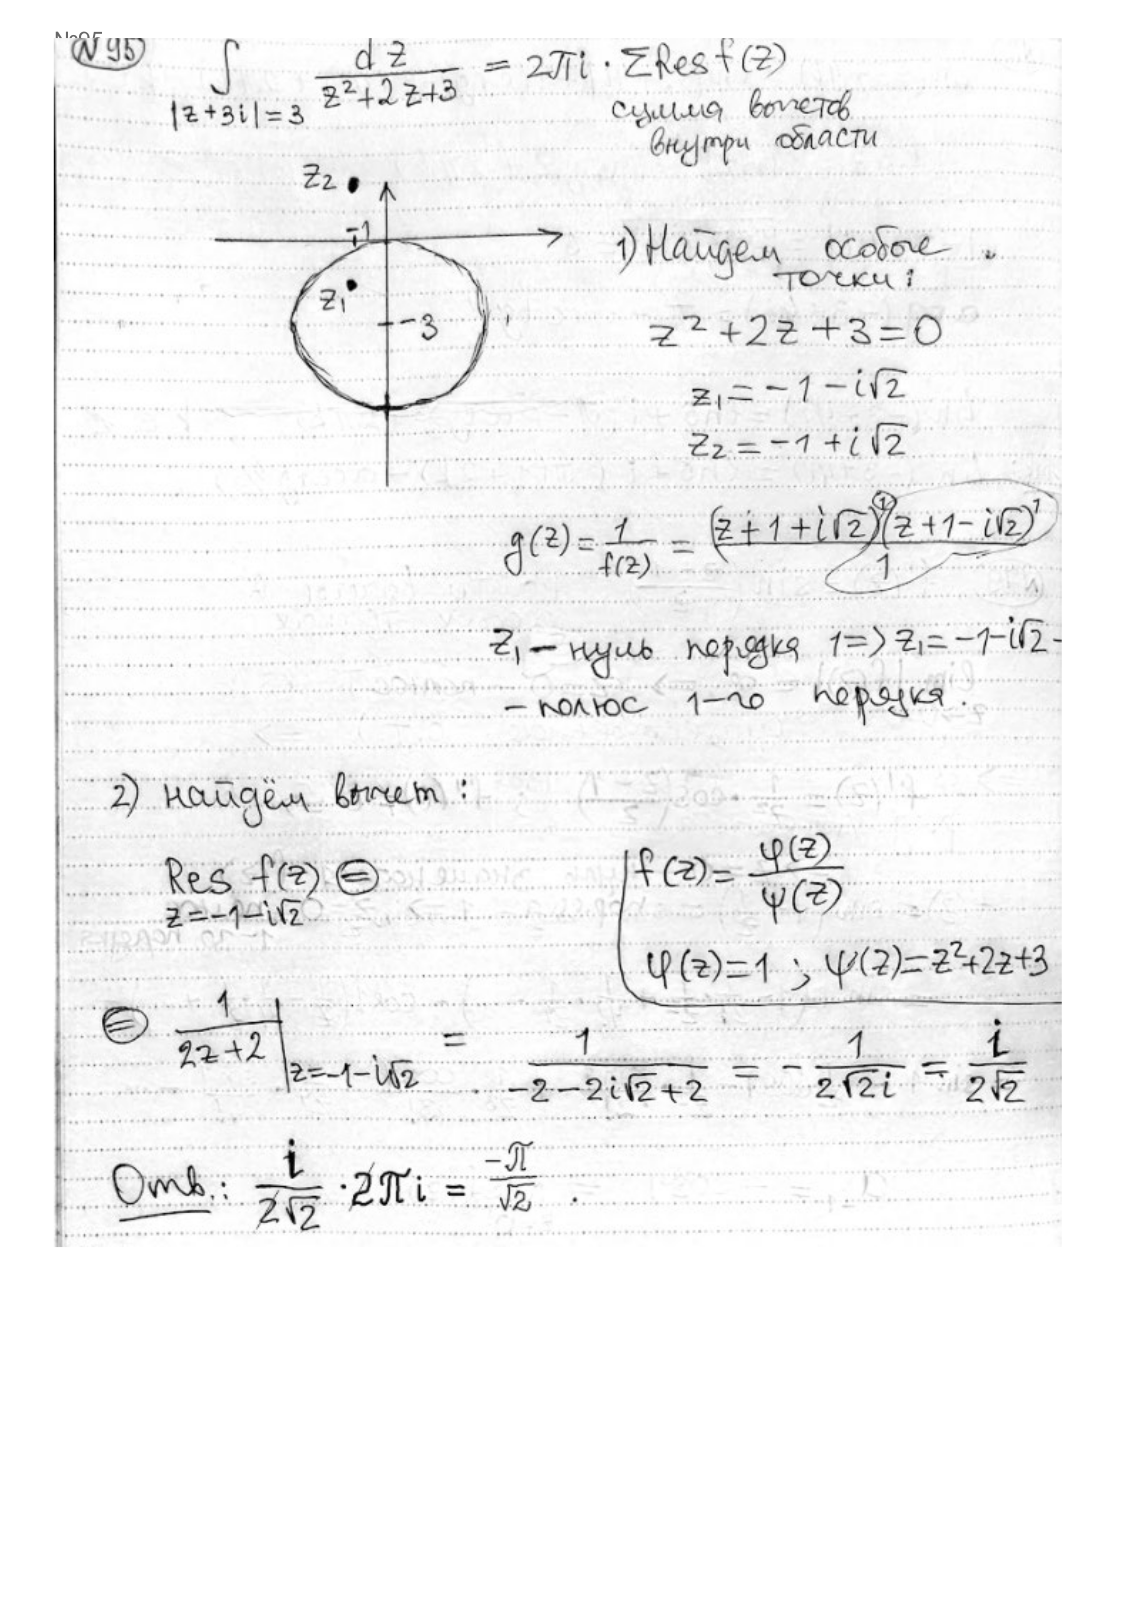 №95
N 95
∫ dz / (z²+2z+3) = 2πi · ΣRes f(z)
|z+3i|=3
сумма вычетов
внутри области
z₂
-1
z₁
-3
1) Найдем особые
точки:
z² + 2z + 3 = 0
z₁ = -1 - i√2
z₂ = -1 + i√2
g(z) = 1/f(z) = (z+1+i√2)¹(z+1-i√2)¹ / 1
z₁ – нуль порядка 1 => z₁ = -1-i√2 -
- полюс 1-го порядка.
2) найдём вычет:
Res f(z) ⊜
z=-1-i√2
f(z) = φ(z)/ψ(z)
φ(z)=1 ; ψ(z)=z²+2z+3
⊜ 1/(2z+2) |z=-1-i√2 = 1/(-2-2i√2+2) = - 1/(2√2i) = i/(2√2)
Отв.: i/(2√2) · 2πi = -π/√2 .